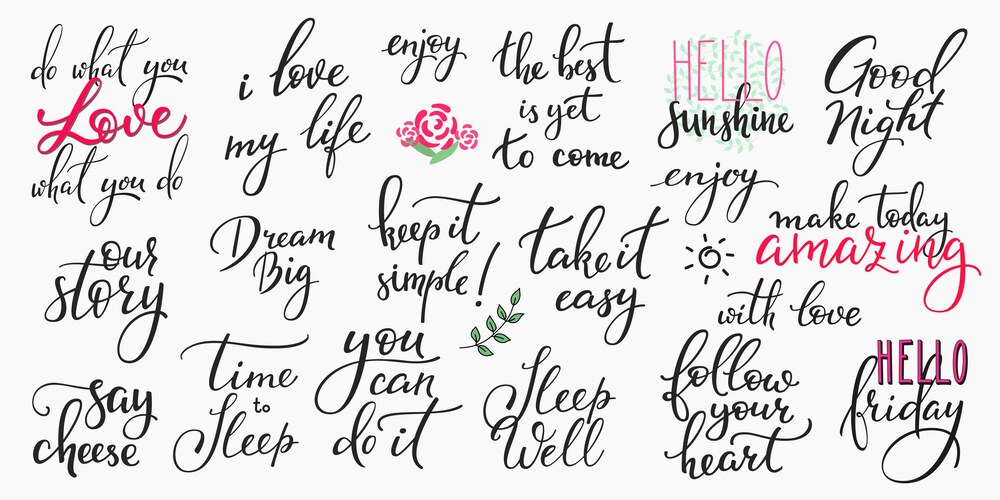 do what you
Love
what you do
i love
my life
enjoy
the best
is yet
to come
HELLO
sunshine
Good
Night
our
story
Dream
Big
keep it
simple!
take it
easy
enjoy
make today
amazing
with love
say
cheese
time
to
Sleep
you
can
do it
Sleep
Well
follow
your
heart
HELLO
friday